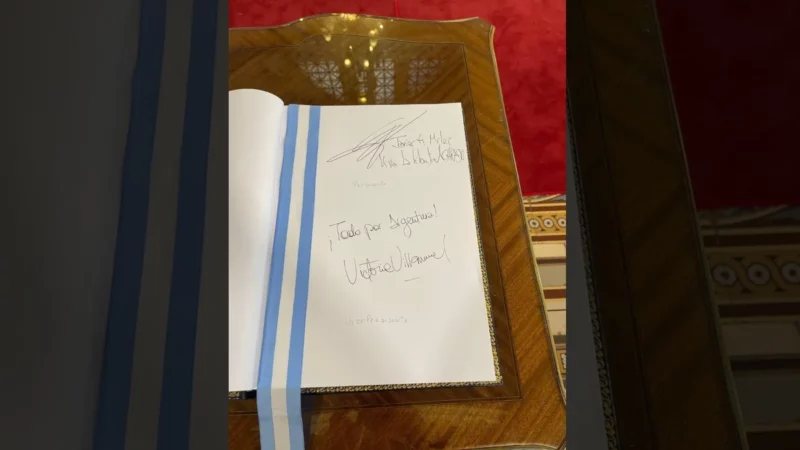 Javier Milei
Viva la Libertad CARAJO
¡Todo por Argentina!
Victoria Villarruel